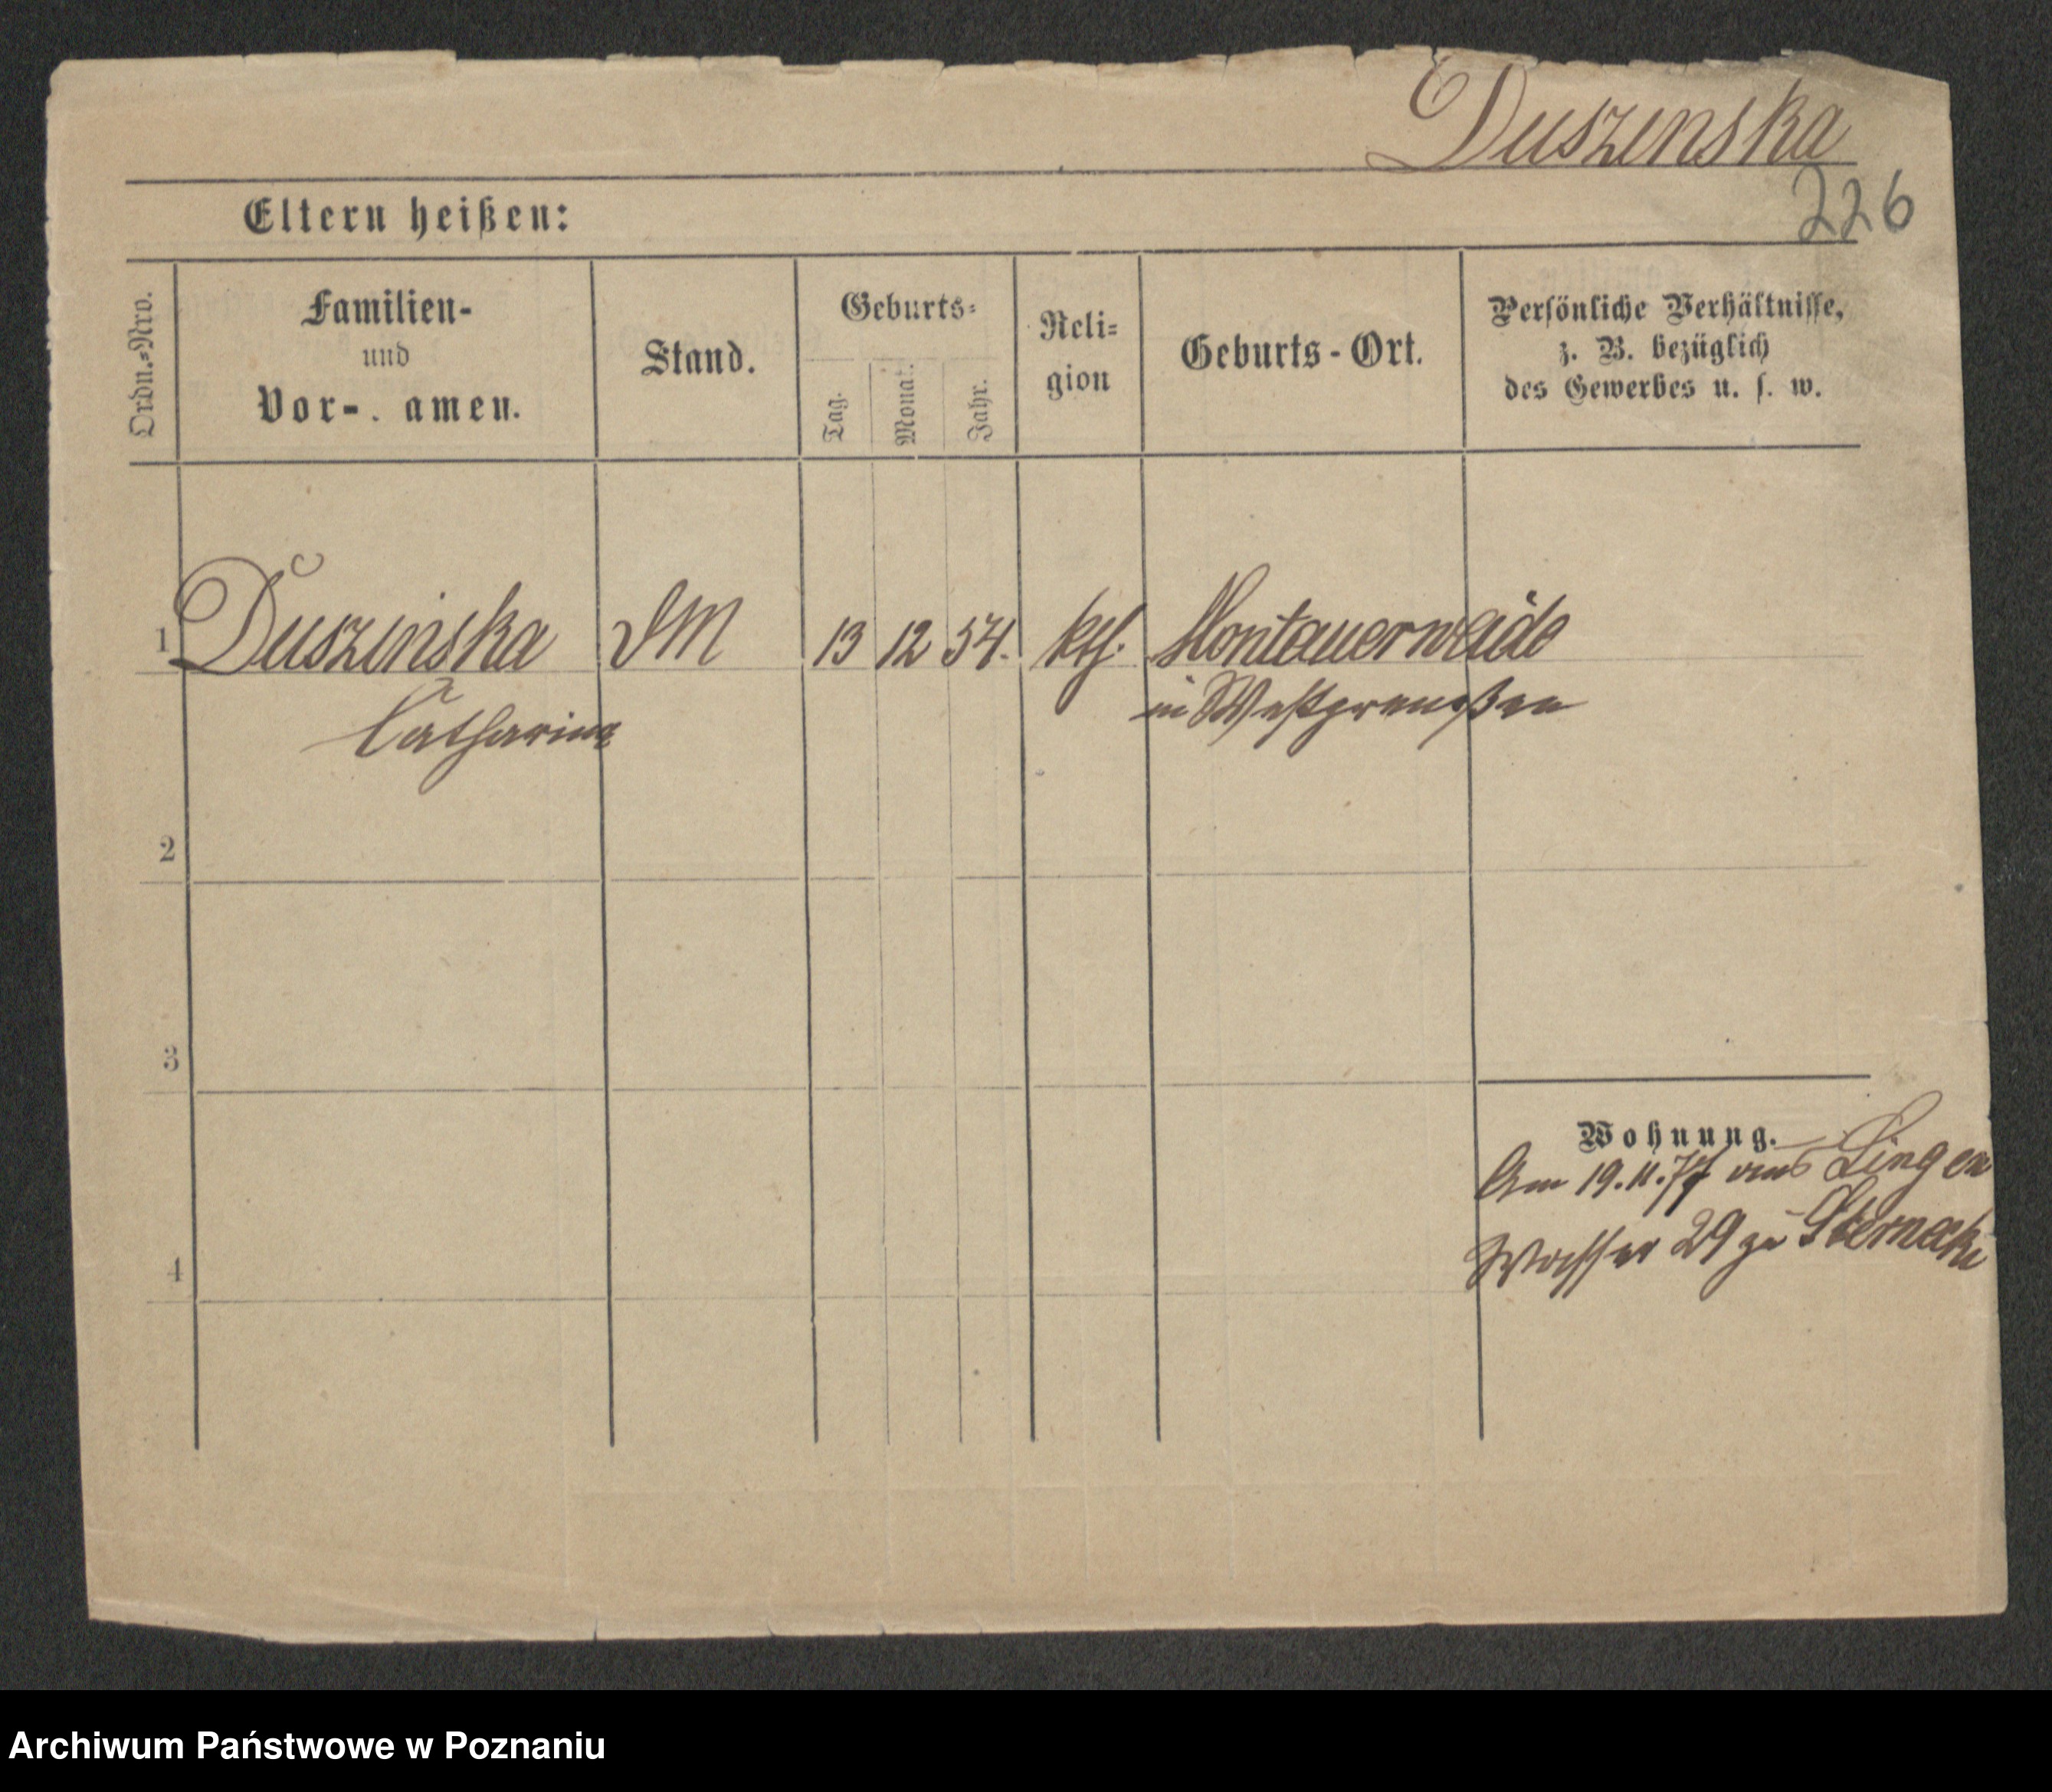 Duszinska
226
Eltern heißen:
Ordn.=Nro.
Familien-
und
Vor-. amen.
Stand.
Geburts=
Tag.
Monat.
Jahr.
Reli=
gion
Geburts-Ort.
Persönliche Verhältnisse,
z. B. bezüglich
des Gewerbes u. s. w.
1 Duszinska DM 13 12 54. kth. Montauerweide
Catharina in Westpreußen
2
3
Wohnung.
Am 19.11.77 aus Lingen
4
Wasser 29 zu Sternecki
Archiwum Państwowe w Poznaniu